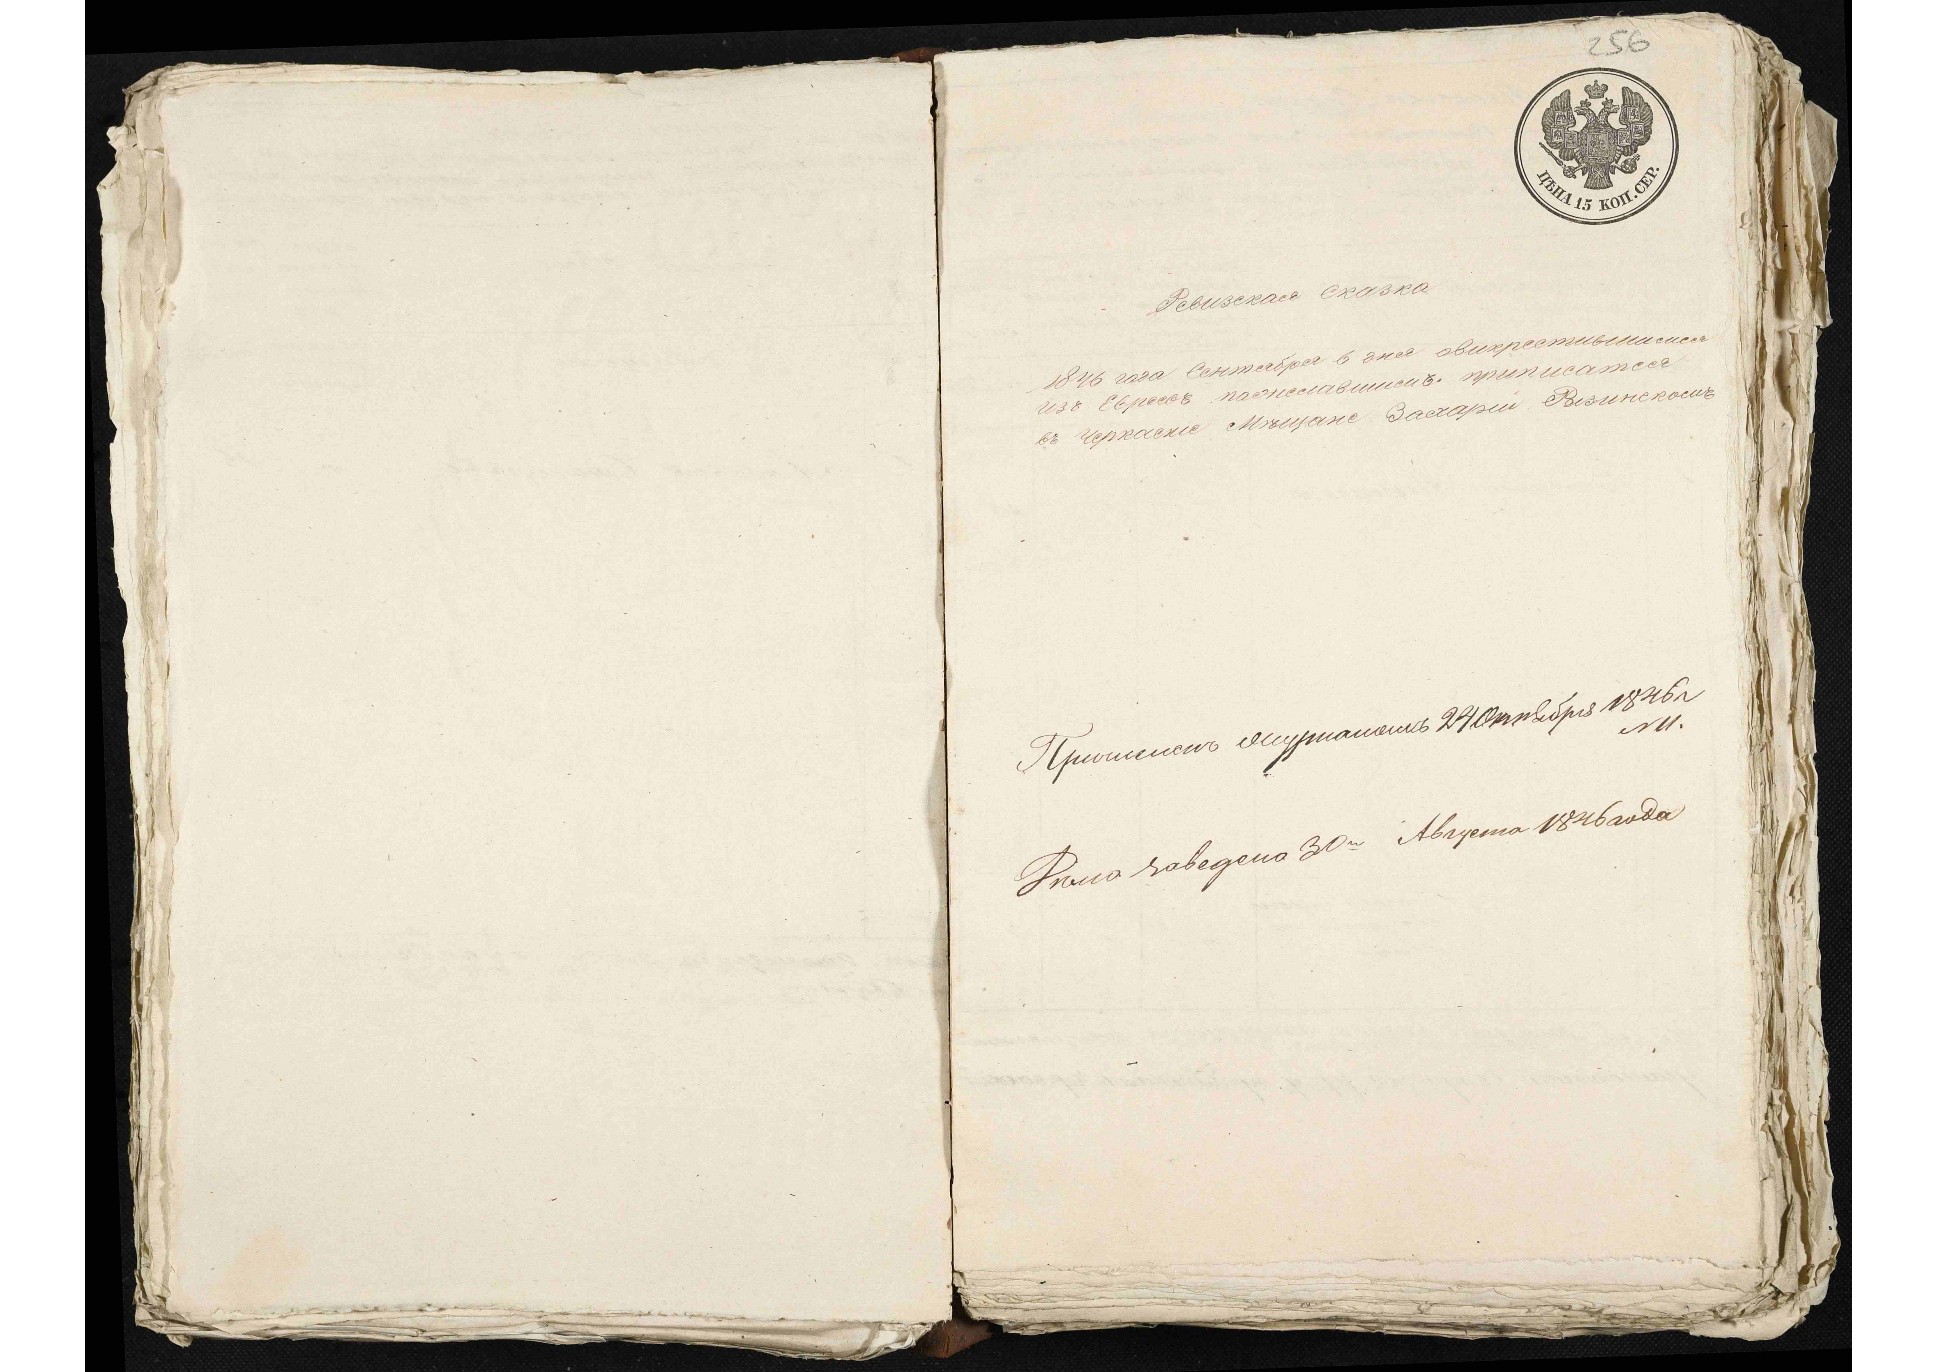 256
ЦѢНА 15 КОП. СЕР.
Ревизская сказка
1846 года Сентября 6 дня овикрестившимся
изъ Евреевъ пожелавшимъ приписатся
въ Черкаские Мещане Захарiи Резинскомъ
Причисленъ Журналомъ 24 Октября 1846 г
№ 11.
Дѣло заведено 30 Августа 1846 года